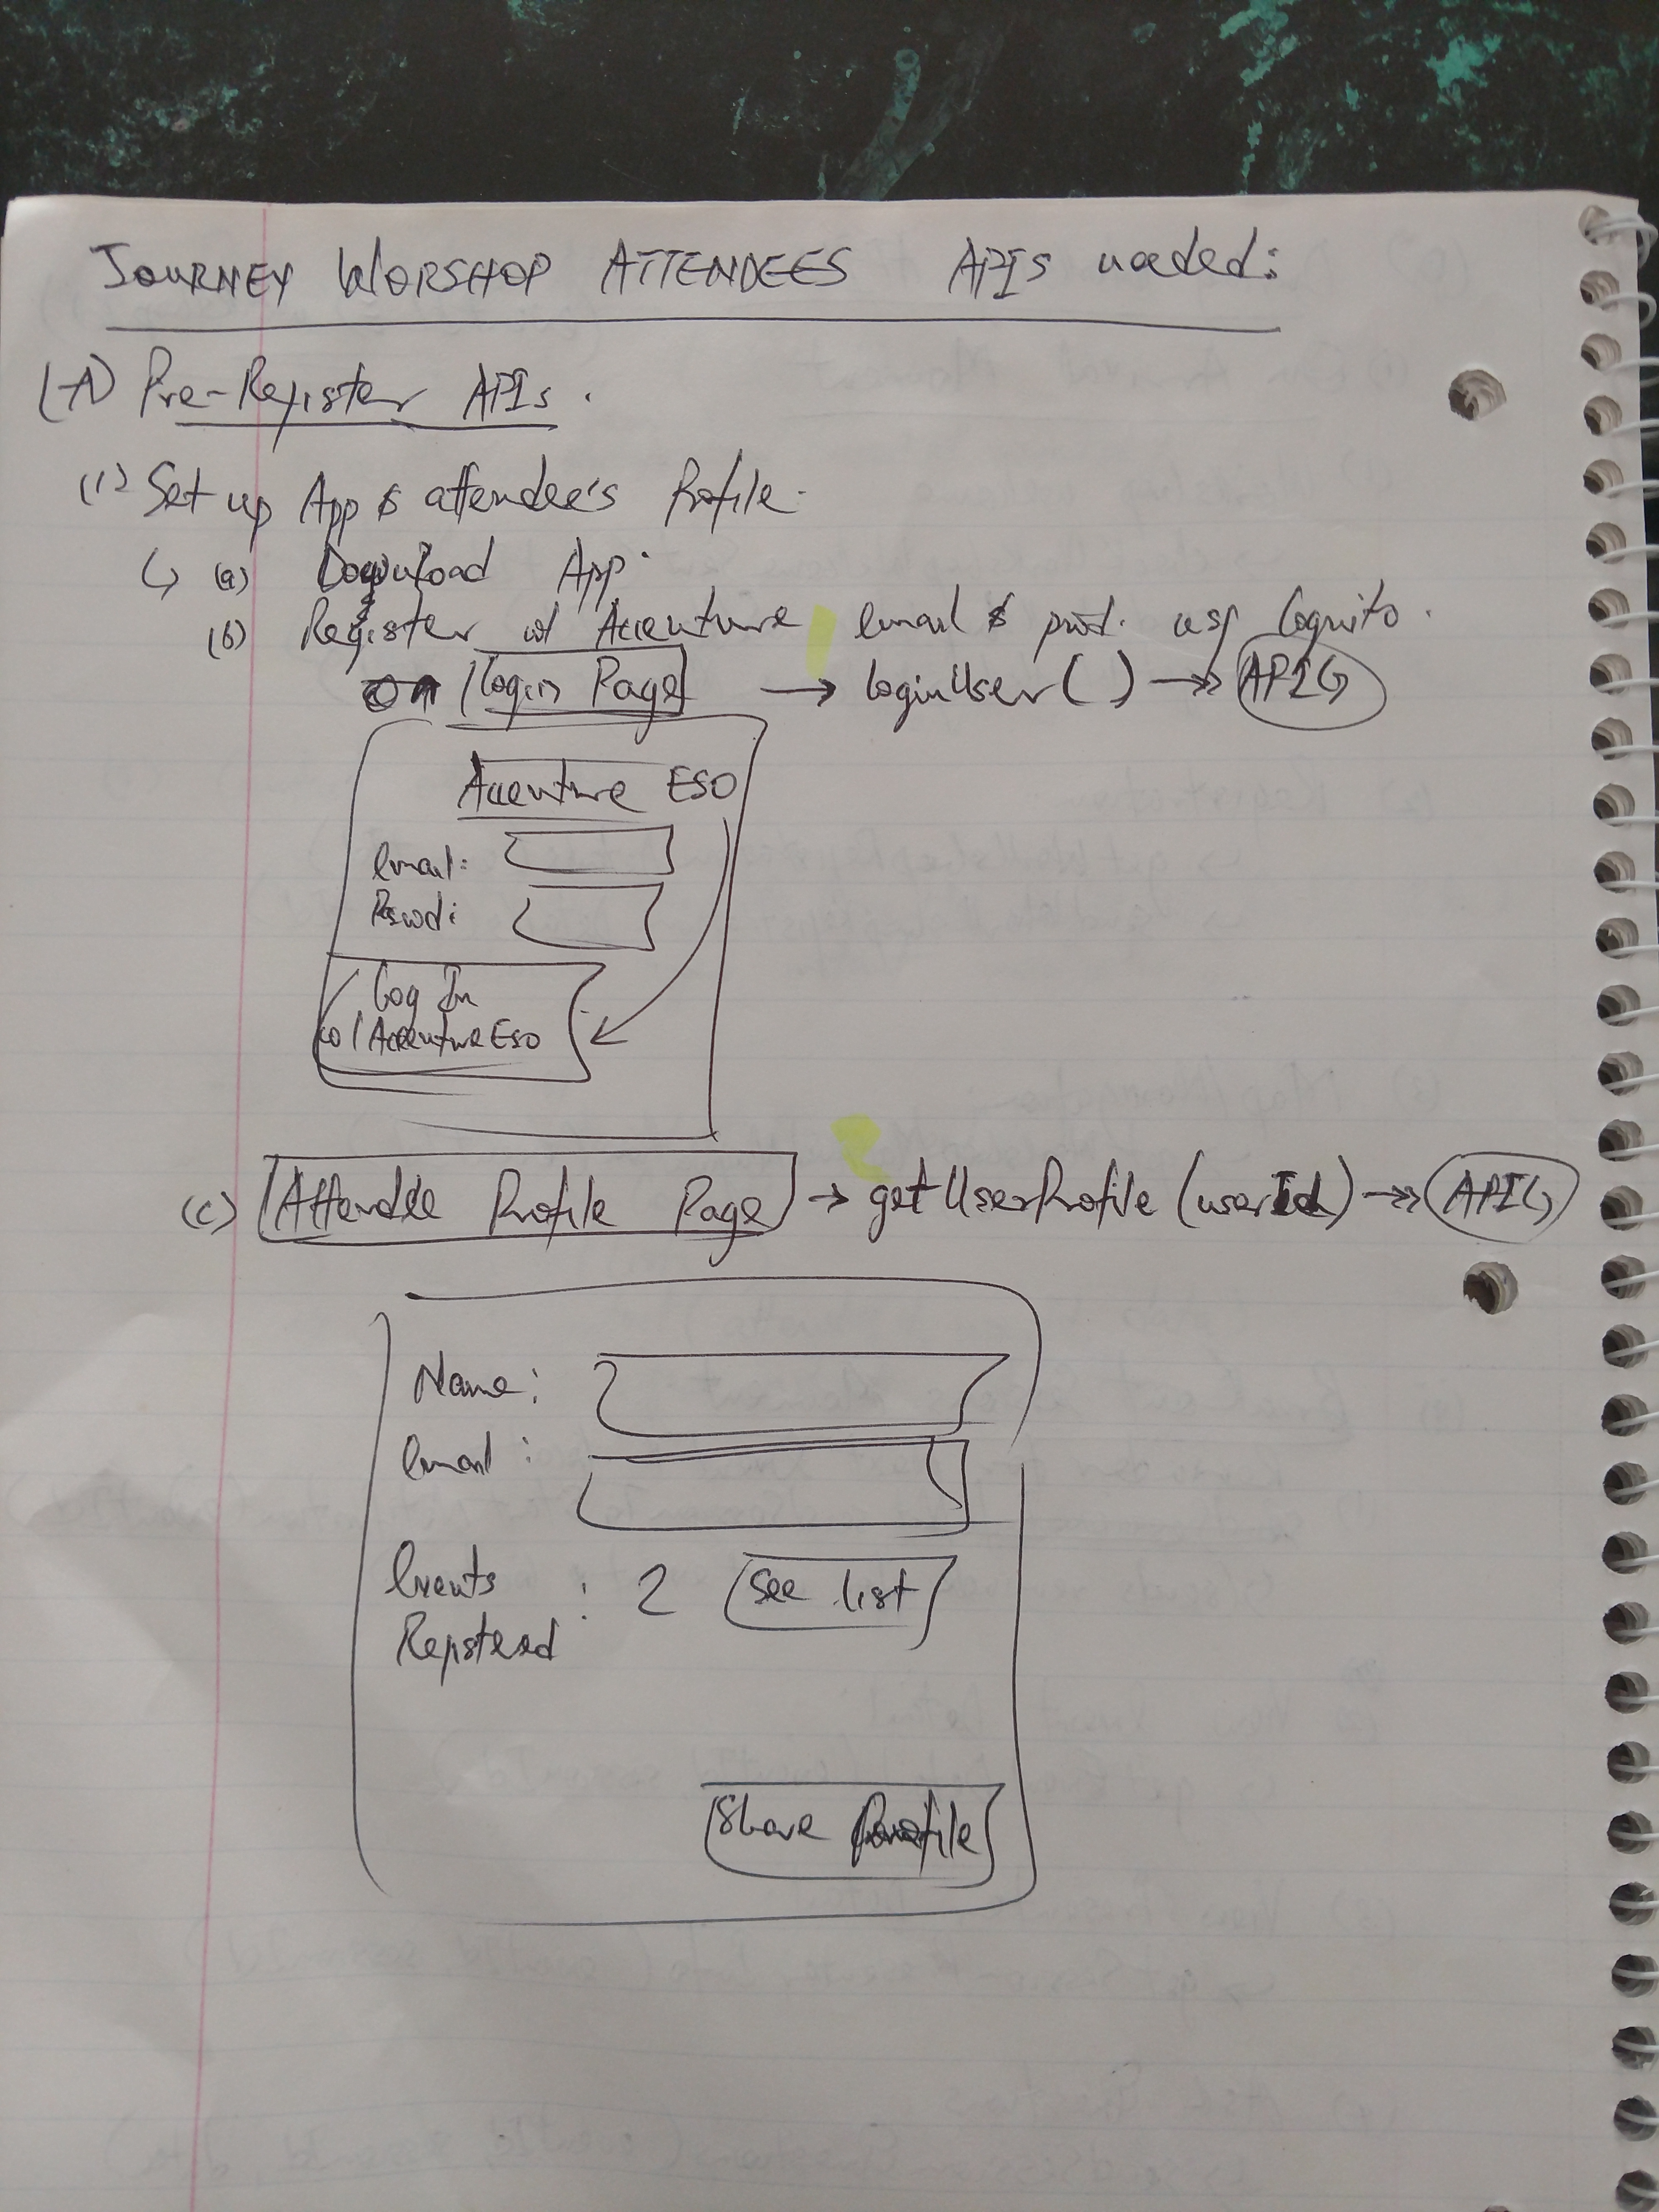 JOURNEY WORSHOP ATTENDEES APIs needed:
(A) Pre-Register APIs.
(1) Set up App & attendee's Profile.
↳ (a) Download App.
(b) Register w/ Accenture email & pwd. usg Cognito.
on Login Page → loginUser() → APIG
Accenture ESO
Email:
Pswd:
Log In
w/ Accenture ESO
(c) Attendee Profile Page → getUserProfile (userId) → APIG
Name:
Email:
Events : 2 See list
Registered
Share Profile